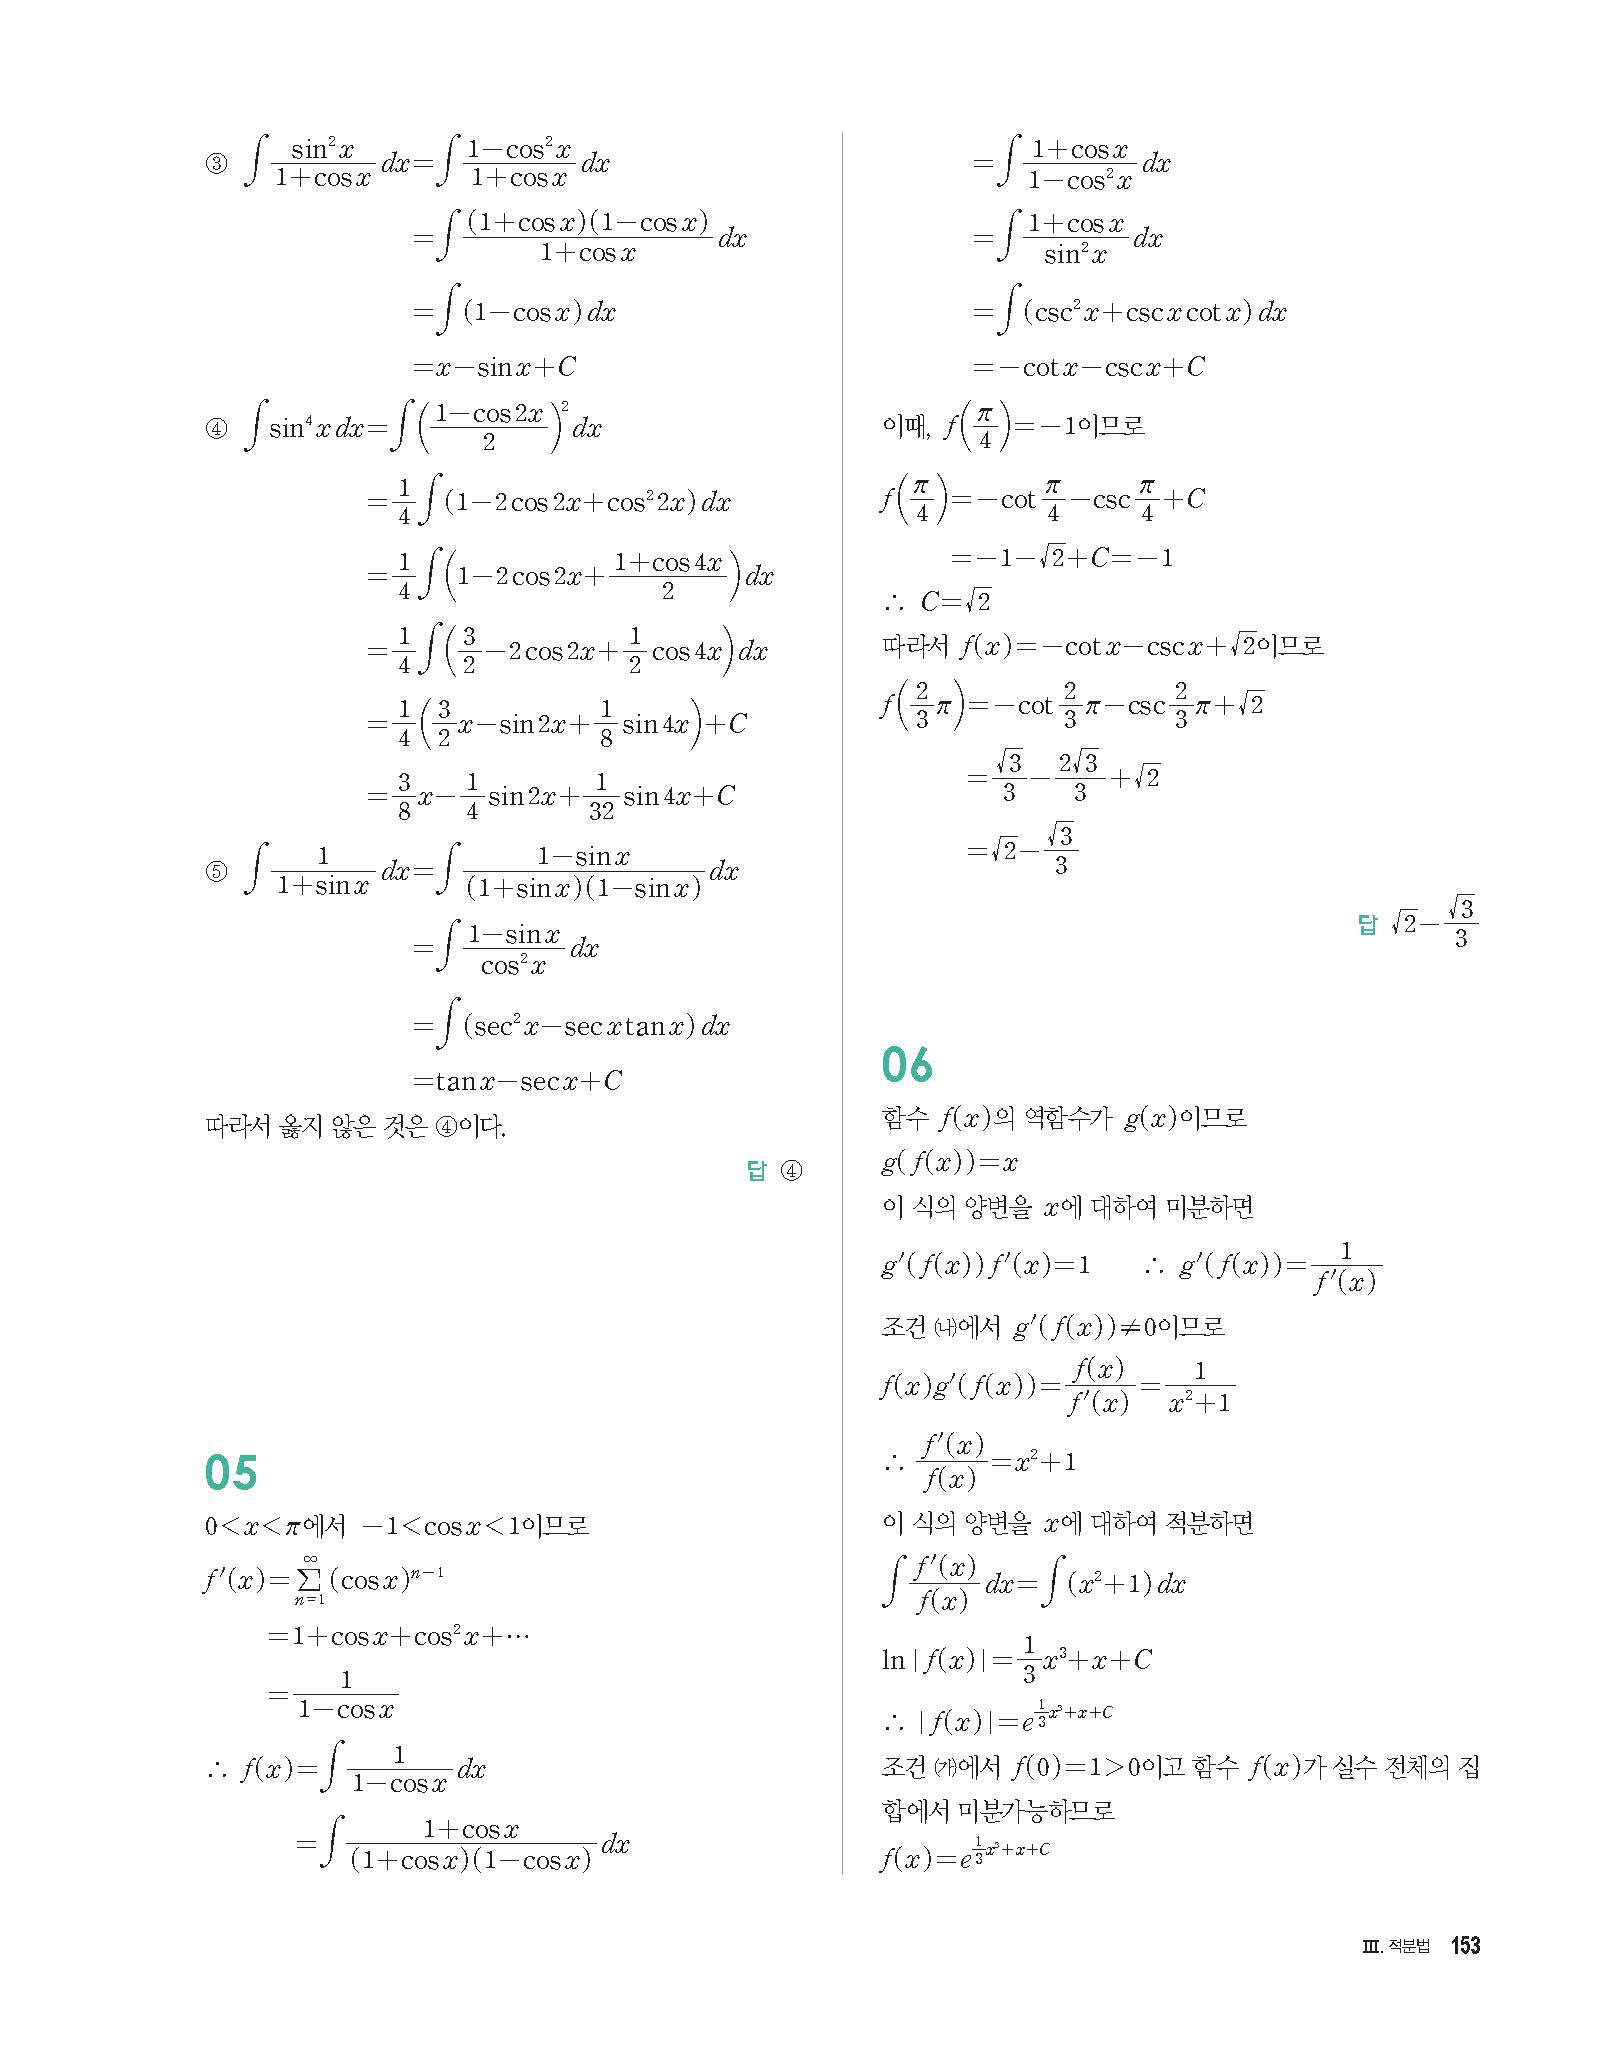 ③ ∫ sin²x/(1+cosx) dx=∫ (1-cos²x)/(1+cosx) dx
=∫ (1+cosx)(1-cosx)/(1+cosx) dx
=∫(1-cosx)dx
=x-sinx+C
④ ∫sin⁴xdx=∫((1-cos2x)/2)²dx
=1/4∫(1-2cos2x+cos²2x)dx
=1/4∫(1-2cos2x+(1+cos4x)/2)dx
=1/4∫(3/2-2cos2x+1/2cos4x)dx
=1/4(3/2x-sin2x+1/8sin4x)+C
=3/8x-1/4sin2x+1/32sin4x+C
⑤ ∫ 1/(1+sinx) dx=∫ (1-sinx)/((1+sinx)(1-sinx)) dx
=∫ (1-sinx)/cos²x dx
=∫(sec²x-secxtanx)dx
=tanx-secx+C
따라서 옳지 않은 것은 ④이다.
답 ④
05
0<x<π에서 -1<cosx<1이므로
f′(x)=∑_{n=1}^{∞}(cosx)^{n-1}
=1+cosx+cos²x+⋯
=1/(1-cosx)
∴ f(x)=∫ 1/(1-cosx) dx
=∫ (1+cosx)/((1+cosx)(1-cosx)) dx
=∫ (1+cosx)/(1-cos²x) dx
=∫ (1+cosx)/sin²x dx
=∫(csc²x+cscxcotx)dx
=-cotx-cscx+C
이때, f(π/4)=-1이므로
f(π/4)=-cot π/4-csc π/4+C
=-1-√2+C=-1
∴ C=√2
따라서 f(x)=-cotx-cscx+√2이므로
f(2/3π)=-cot 2/3π-csc 2/3π+√2
=√3/3-2√3/3+√2
=√2-√3/3
답 √2-√3/3
06
함수 f(x)의 역함수가 g(x)이므로
g(f(x))=x
이 식의 양변을 x에 대하여 미분하면
g′(f(x))f′(x)=1 ∴ g′(f(x))=1/f′(x)
조건 ㈏에서 g′(f(x))≠0이므로
f(x)g′(f(x))=f(x)/f′(x)=1/(x²+1)
∴ f′(x)/f(x)=x²+1
이 식의 양변을 x에 대하여 적분하면
∫ f′(x)/f(x) dx=∫(x²+1)dx
ln|f(x)|=1/3x³+x+C
∴ |f(x)|=e^{1/3x³+x+C}
조건 ㈎에서 f(0)=1>0이고 함수 f(x)가 실수 전체의 집
합에서 미분가능하므로
f(x)=e^{1/3x³+x+C}
Ⅲ. 적분법 153